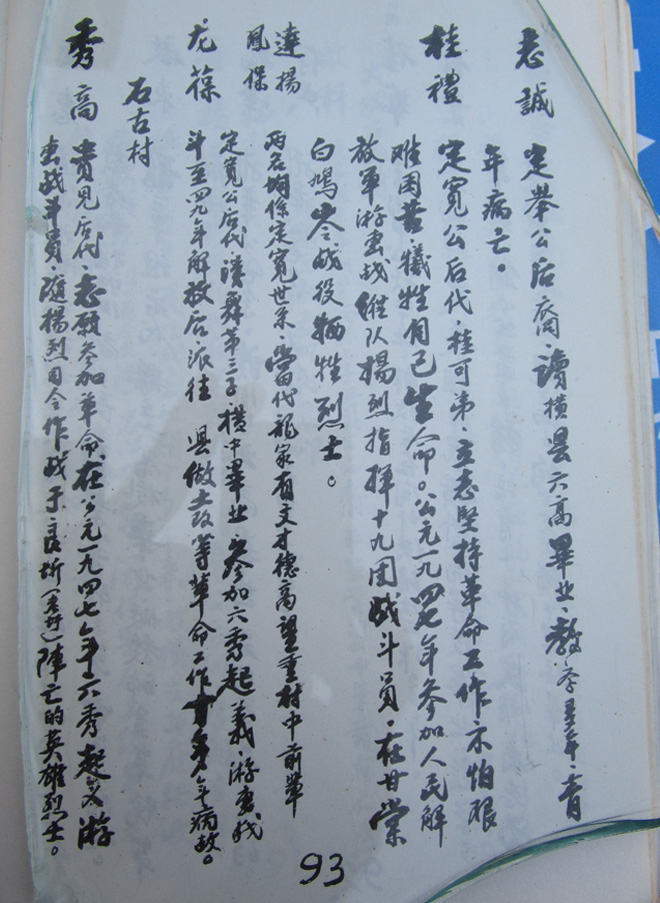 志誠 定舉公后裔、讀橫县六高畢业、教学多年、青
年病亡。
桂禮 定寬公后代、桂可弟、立志堅持革命工作不怕艰
难困苦、犧牲自己生命。公元一九四七年参加人民解
放軍游击战縱队楊烈指揮十九团战斗員、在甘棠
白鳩岺战役牺牲烈士。
達揚
鳳保 两名関係定寬世系、當代龍家有文才德高望重村中前輩
定寬公后代讀舞第三子橫中畢业、参加六秀起義、游击战
龙葆 斗至四九年解放后派往 县做土改等革命工作 年病故。
石古村
秀高 貴見后代、志願参加革命、在公元一九四七年六秀起义游
击战斗員、隨楊烈司令作战于良圻(圩)陣亡的英雄烈士。
93